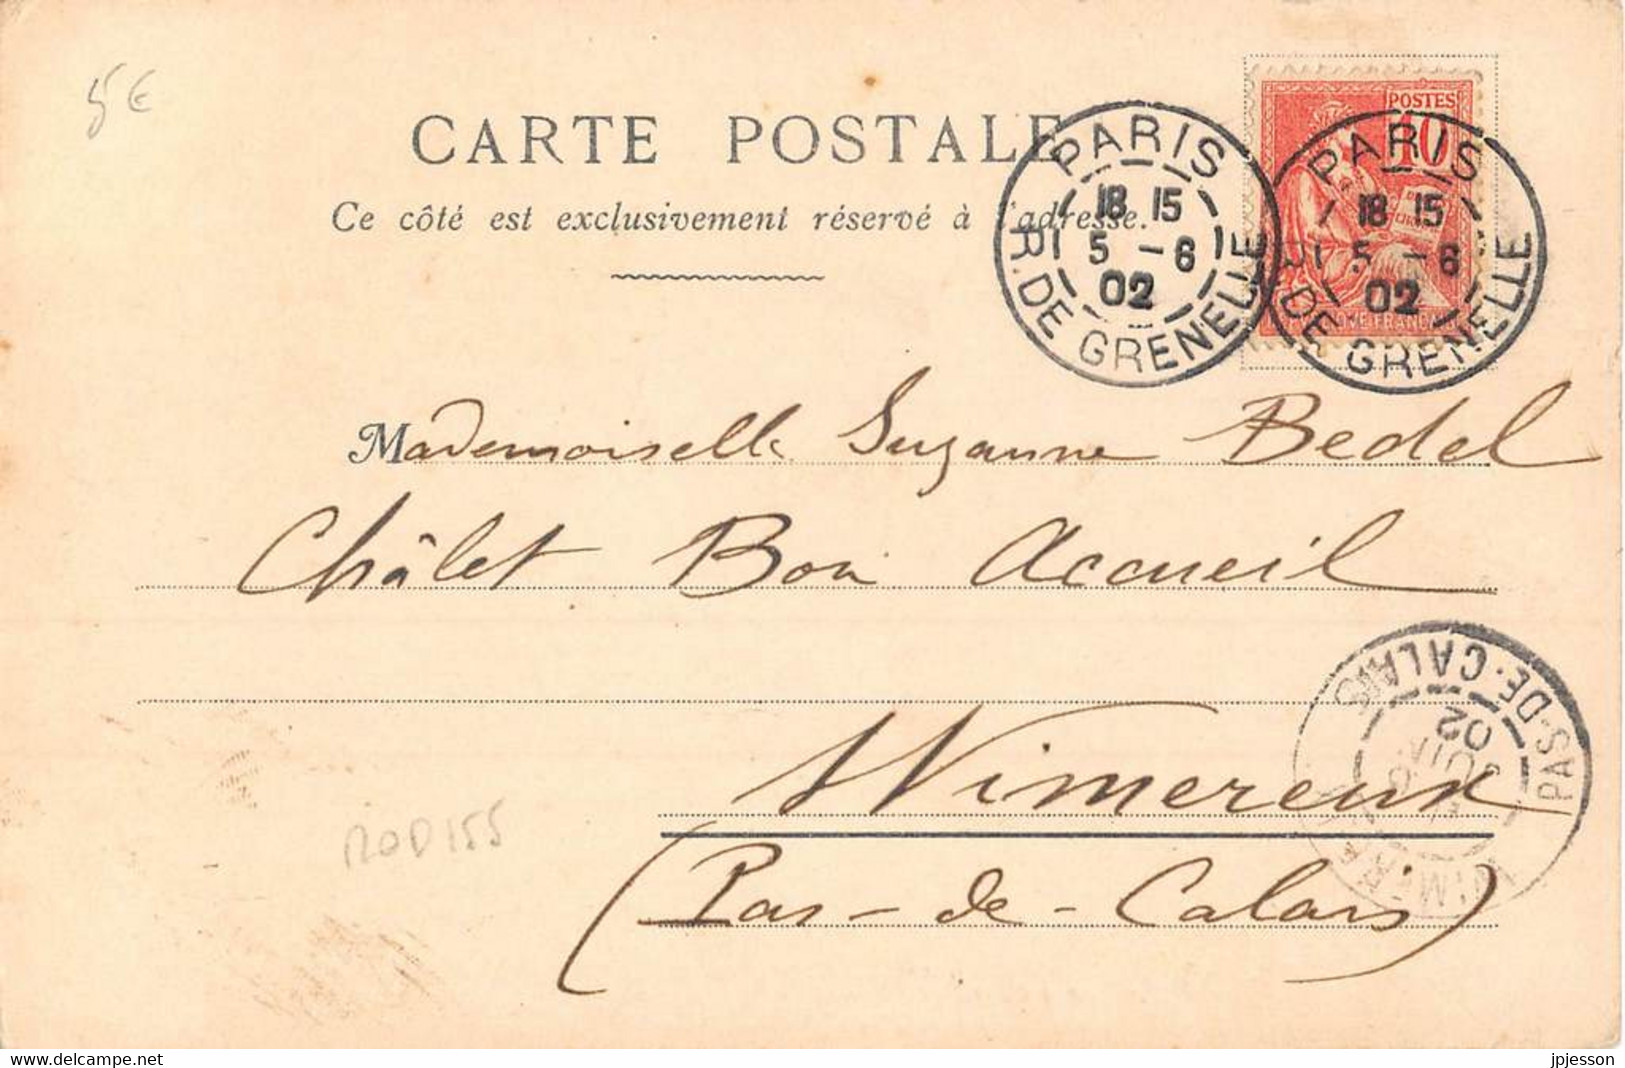 5 €
CARTE POSTALE
Ce côté est exclusivement réservé à l'adresse.
POSTES
10
PARIS
18 15
5 - 6
02
R. DE GRENELLE
PARIS
18 15
5 - 6
02
R. DE GRENELLE
Mademoiselle Suzanne Bedel
Châlet Bon Accueil
Wimereux
(Pas-de-Calais)
PAS-DE-CALAIS
JUIN
02
ROD 155
jpjesson